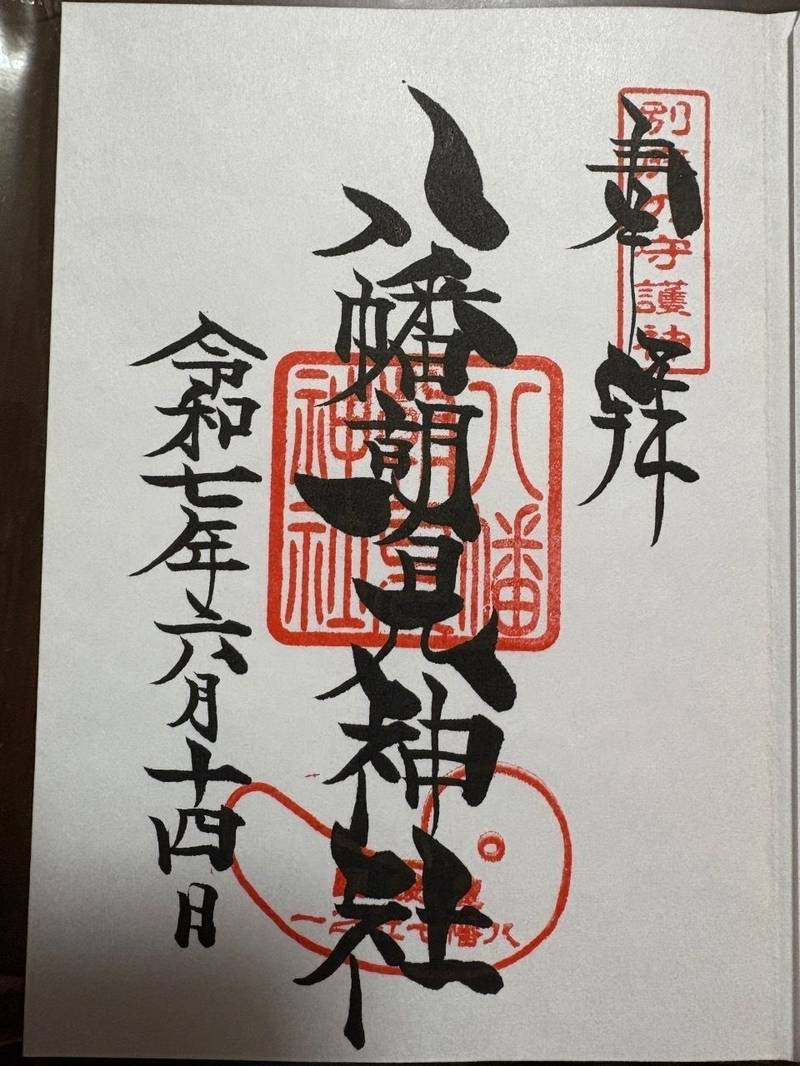 奉拝
別府の守護神
八幡朝見神社
八幡朝見神社
令和七年六月十四日